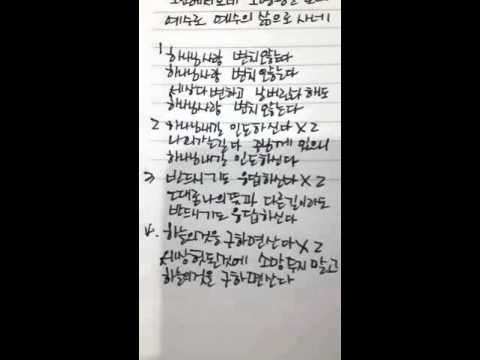 예수로 예수의 삶으로 사네
1 하나님사랑 변치않는다
하나님사랑 변치않는다
세상다 변하고 날버린다 해도
하나님사랑 변치않는다
2 하나님내길 인도하신다 X 2
나의가는길 다 주님께 있으니
하나님내길 인도하신다
3 반드시기도 응답하신다 X 2
그대로나의뜻과 다른길이라도
반드시기도 응답하신다
4. 하늘의것을 구하면산다 X 2
세상헛된것에 소망두지 말고
하늘의것을 구하면산다